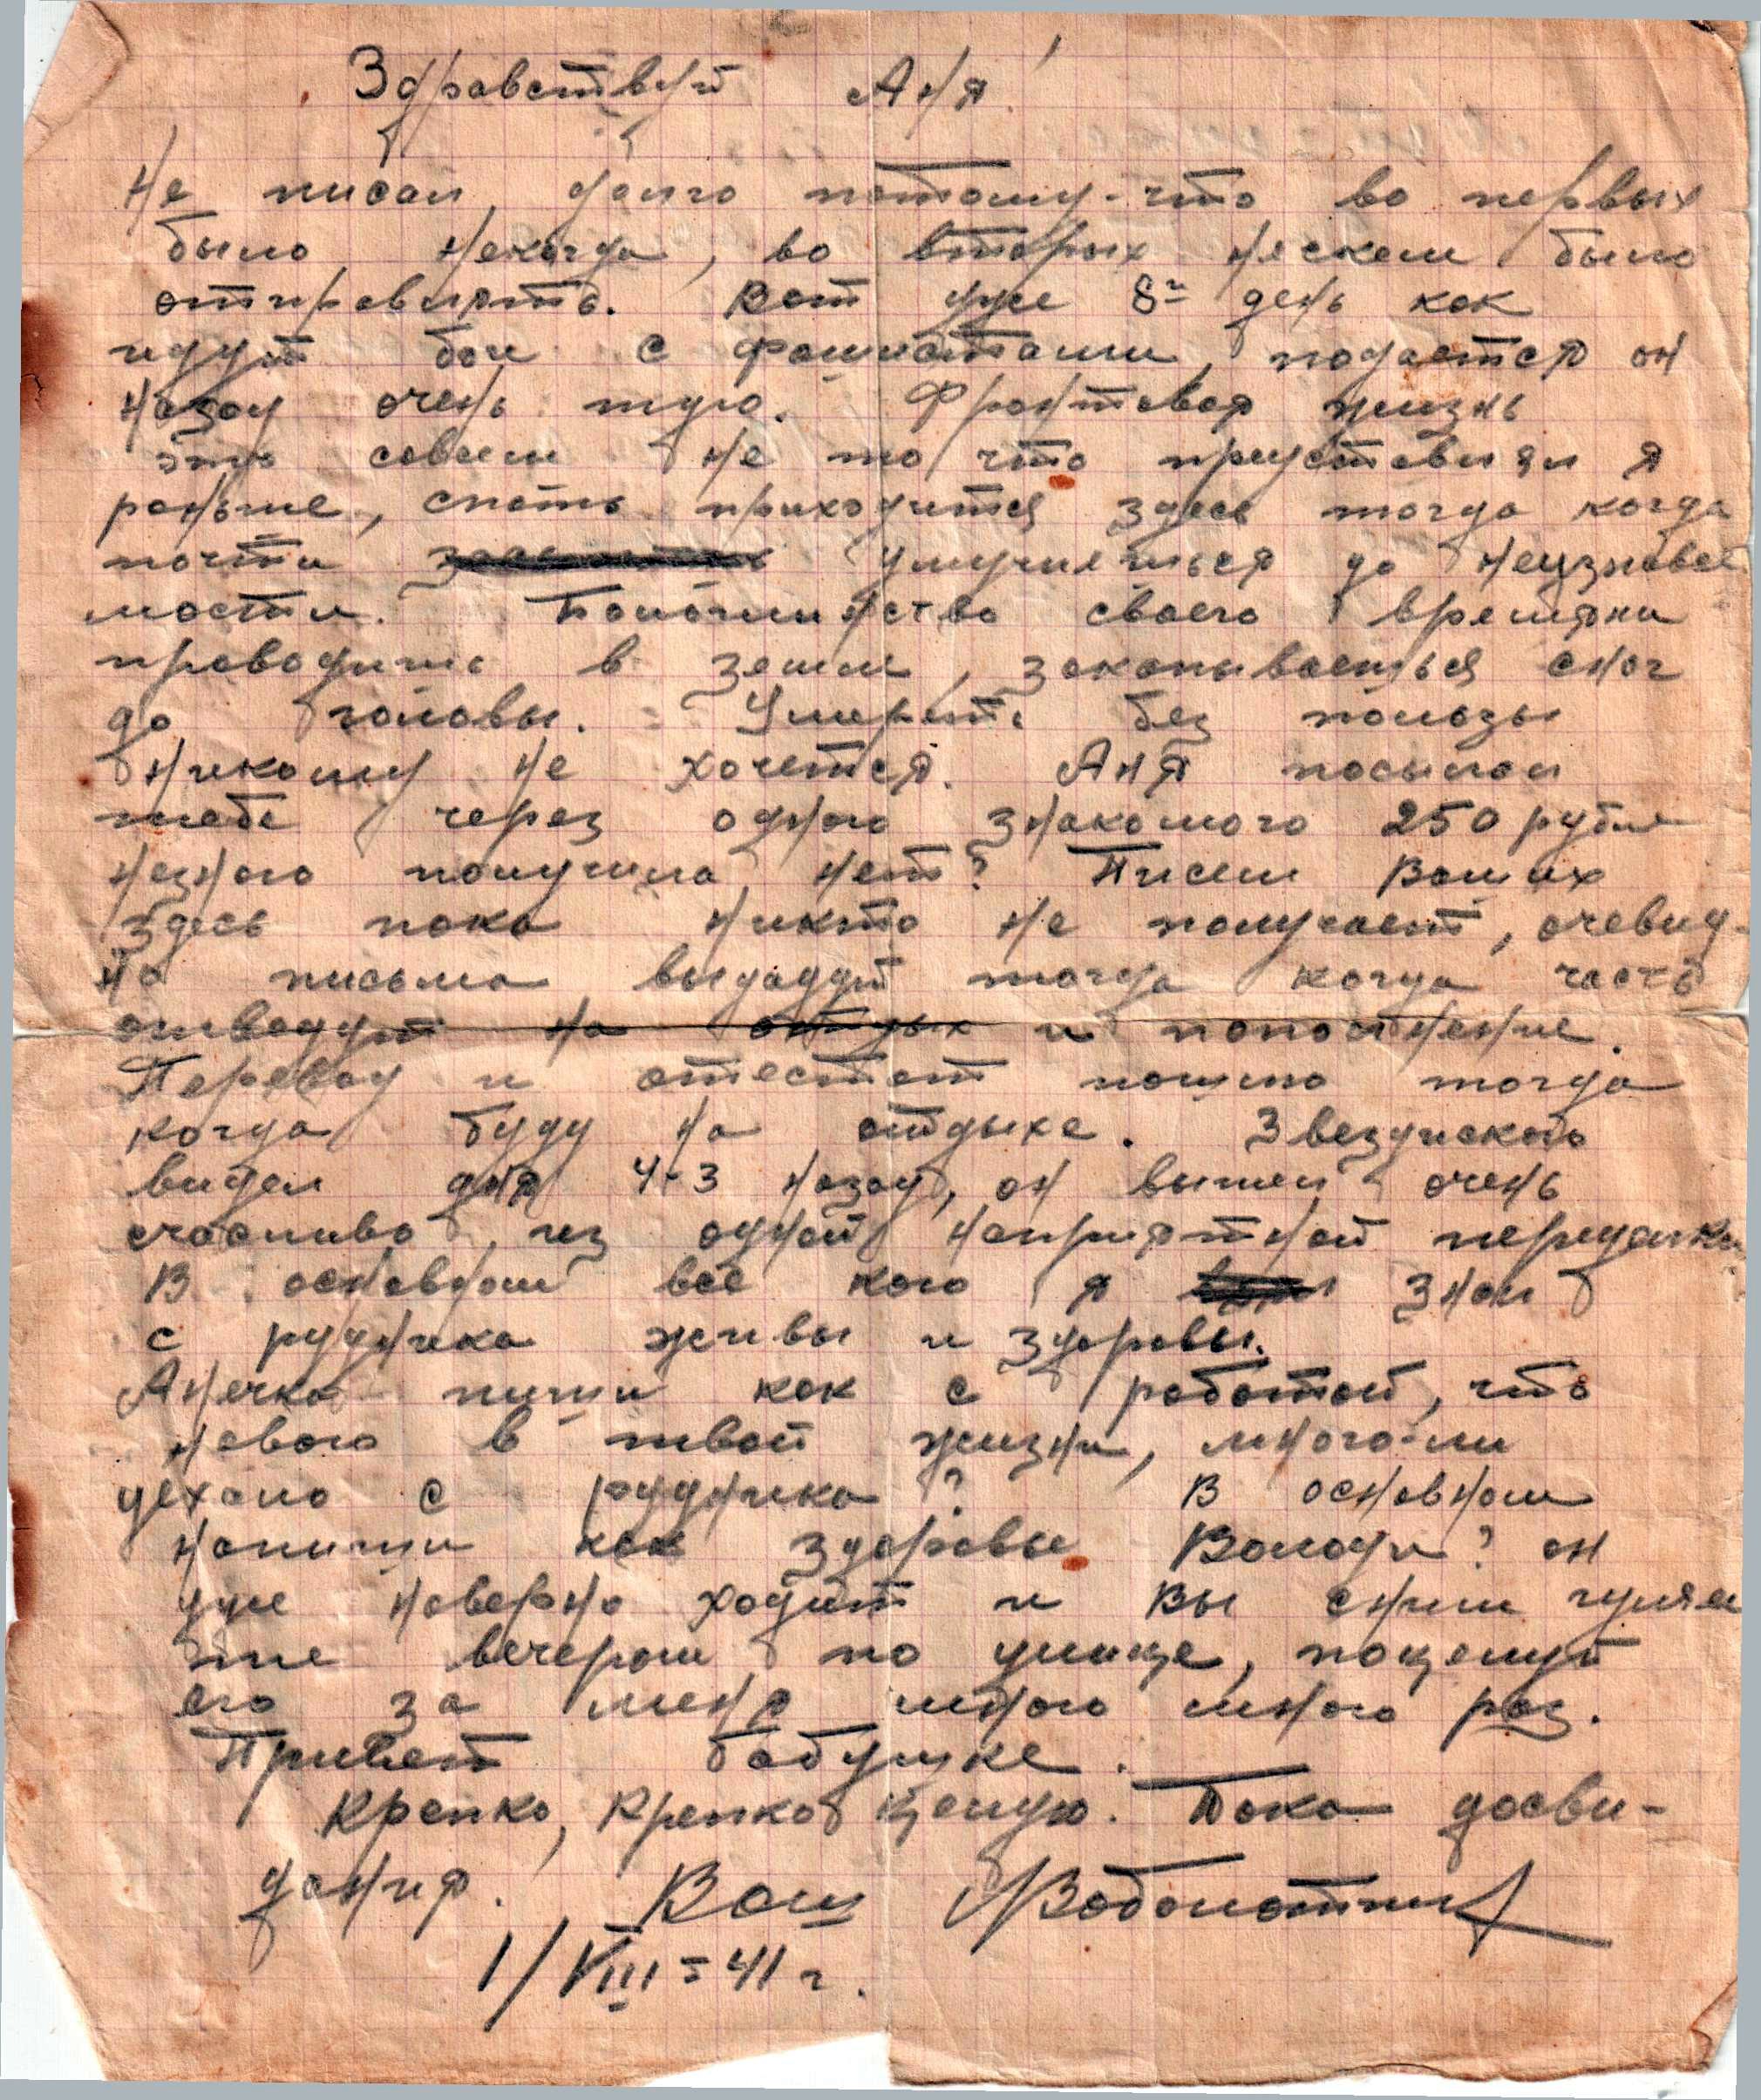 Здравствуй Аня!
Не писал долго потому-что во первых
было некогда, во вторых нескем было
отправлять. Вот уже 8й день как
идут бои с фашистами, подается он
назад очень туго. Фронтовая жизнь
это совсем не то что представлял я
раньше, спать приходится здесь тогда когда
почти умучиешься до неузновае
мости. Большинство своего времяни
проводишь в земле, закапываешься сног
до головы. Умереть без пользы
никому не хочется. Аня посылал
тебе через одного знакомого 250 рубле
незнаю получила, нет? Писем Ваших
здесь пока никто не получает, очевид-
но письма выдаддут тогда когда часть
отведут на отдых и пополнение.
Перевод и атестат пошлю тогда
когда буду на отдыхе. Звездинского
видел дня 4-3 назад, он вышел очень
счасливо, из одной неприятной переделки
В основном все кого я знал
с рудника живы и здоровы.
Анечка пиши как с работой, что
нового в твоей жизни, много-ли
уехало с рудника? В основном
напиши как здоровье Володи? он
уже наверно ходит и Вы сним гуляе
те вечером по улице, поцелуй
его за меня много много раз.
Привет бабушке.
Крепко, Крепко целую. Пока досви-
дания. Ваш
1/VIII-41 г.